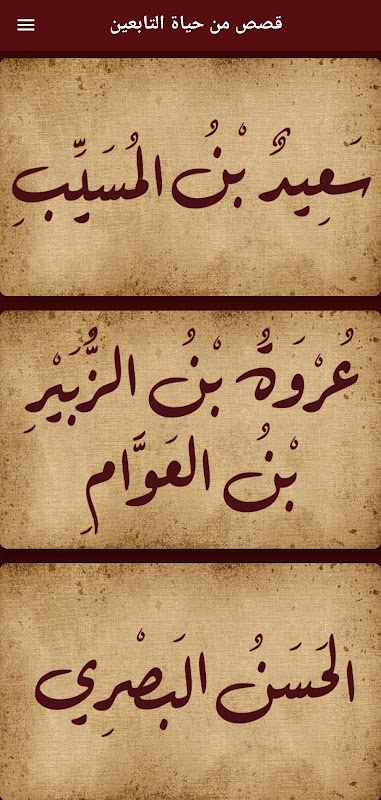 قصص من حياة التابعين
سَعِيدٌ بْنُ المُسَيِّبِ
عُرْوَةُ بْنُ الزُّبَيْرِ
بْنُ العَوَّامِ
الحَسَنُ البَصْرِي